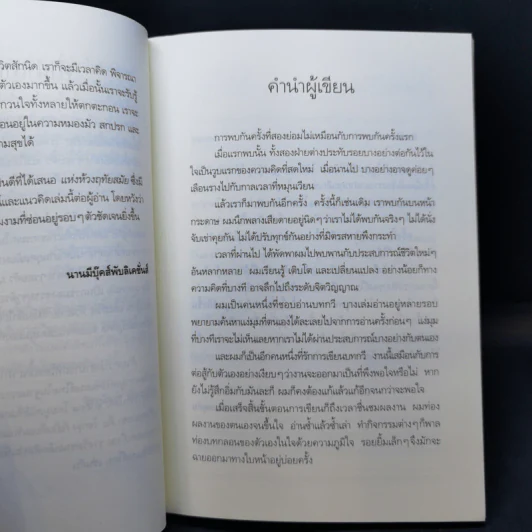 วิตสักนิด เราก็จะมีเวลาคิด พิจารณา
ตัวเองมากขึ้น แล้วเมื่อนั้นเราจะรับรู้
กวนใจทั้งหลายให้ตกตะกอน เราจะ
อนอยู่ในความหมองมัว สกปรก และ
ามสุขได้
นดีที่ได้เสนอ แห่งห้วงฤทัยสมัย ซึ่งมี
และแนวคิดเล่มนี้ต่อผู้อ่าน โดยหวังว่า
งามที่ซ่อนอยู่รอบๆ ตัวชัดเจนยิ่งขึ้น
นานมีบุ๊คส์พับลิเคชั่นส์
คำนำผู้เขียน
การพบกันครั้งที่สองย่อมไม่เหมือนกับการพบกันครั้งแรก
เมื่อแรกพบนั้น ทั้งสองฝ่ายต่างประทับรอยบางอย่างต่อกันไว้ใน
ใจเป็นรูปแรกของความคิดที่สดใหม่ เมื่อนานไป บางอย่างอาจดูค่อยๆ
เลือนรางไปกับกาลเวลาที่หมุนเวียน
แล้วเราก็มาพบกันอีกครั้ง ครั้งนี้ก็เช่นเดิม เราพบกันบนหน้า
กระดาษ ผมนึกพลางเสียดายอยู่นิดๆ ว่าเราไม่ได้พบกันจริงๆ ไม่ได้นั่ง
จับเข่าคุยกัน ไม่ได้ปรับทุกข์กันอย่างที่มิตรสหายพึงกระทำ
เวลาที่ผ่านไป ได้พัดพาผมไปพบพานกับประสบการณ์ชีวิตใหม่ๆ
อันหลากหลาย ผมเรียนรู้ เติบโต และเปลี่ยนแปลง อย่างน้อยก็ทาง
ความคิดที่บางที อาจลึกไปถึงระดับจิตวิญญาณ
ผมเป็นคนหนึ่งที่ชอบอ่านบทกวี บางเล่มอ่านอยู่หลายรอบ
พยายามค้นหาแง่มุมที่ตนเองได้ละเลยไปจากการอ่านครั้งก่อนๆ แง่มุม
ที่บางทีเราจะไม่เห็นเลยหากเราไม่ได้ผ่านประสบการณ์บางอย่างกับตนเอง
และผมก็เป็นอีกคนหนึ่งที่รักการเขียนบทกวี งานนี้เสมือนกับการ
ต่อสู้กับตัวเองอย่างเงียบๆ ว่างานจะออกมาเป็นที่พึงพอใจหรือไม่ หาก
ยังไม่รู้สึกอิ่มกับมันละก็ ผมก็คงต้องแก้แล้วแก้อีกจนกว่าจะพอใจ
เมื่อเสร็จสิ้นขั้นตอนการเขียนก็ถึงเวลาชื่นชมผลงาน ผมท่อง
ผลงานของตนเองจนขึ้นใจ อ่านซ้ำแล้วซ้ำเล่า ทำกิจกรรมต่างๆ ก็พาล
ท่องบทกลอนของตัวเองในใจด้วยความภูมิใจ รอยยิ้มเล็กๆ จึงมักจะ
ฉายออกมาทางใบหน้าอยู่บ่อยครั้ง